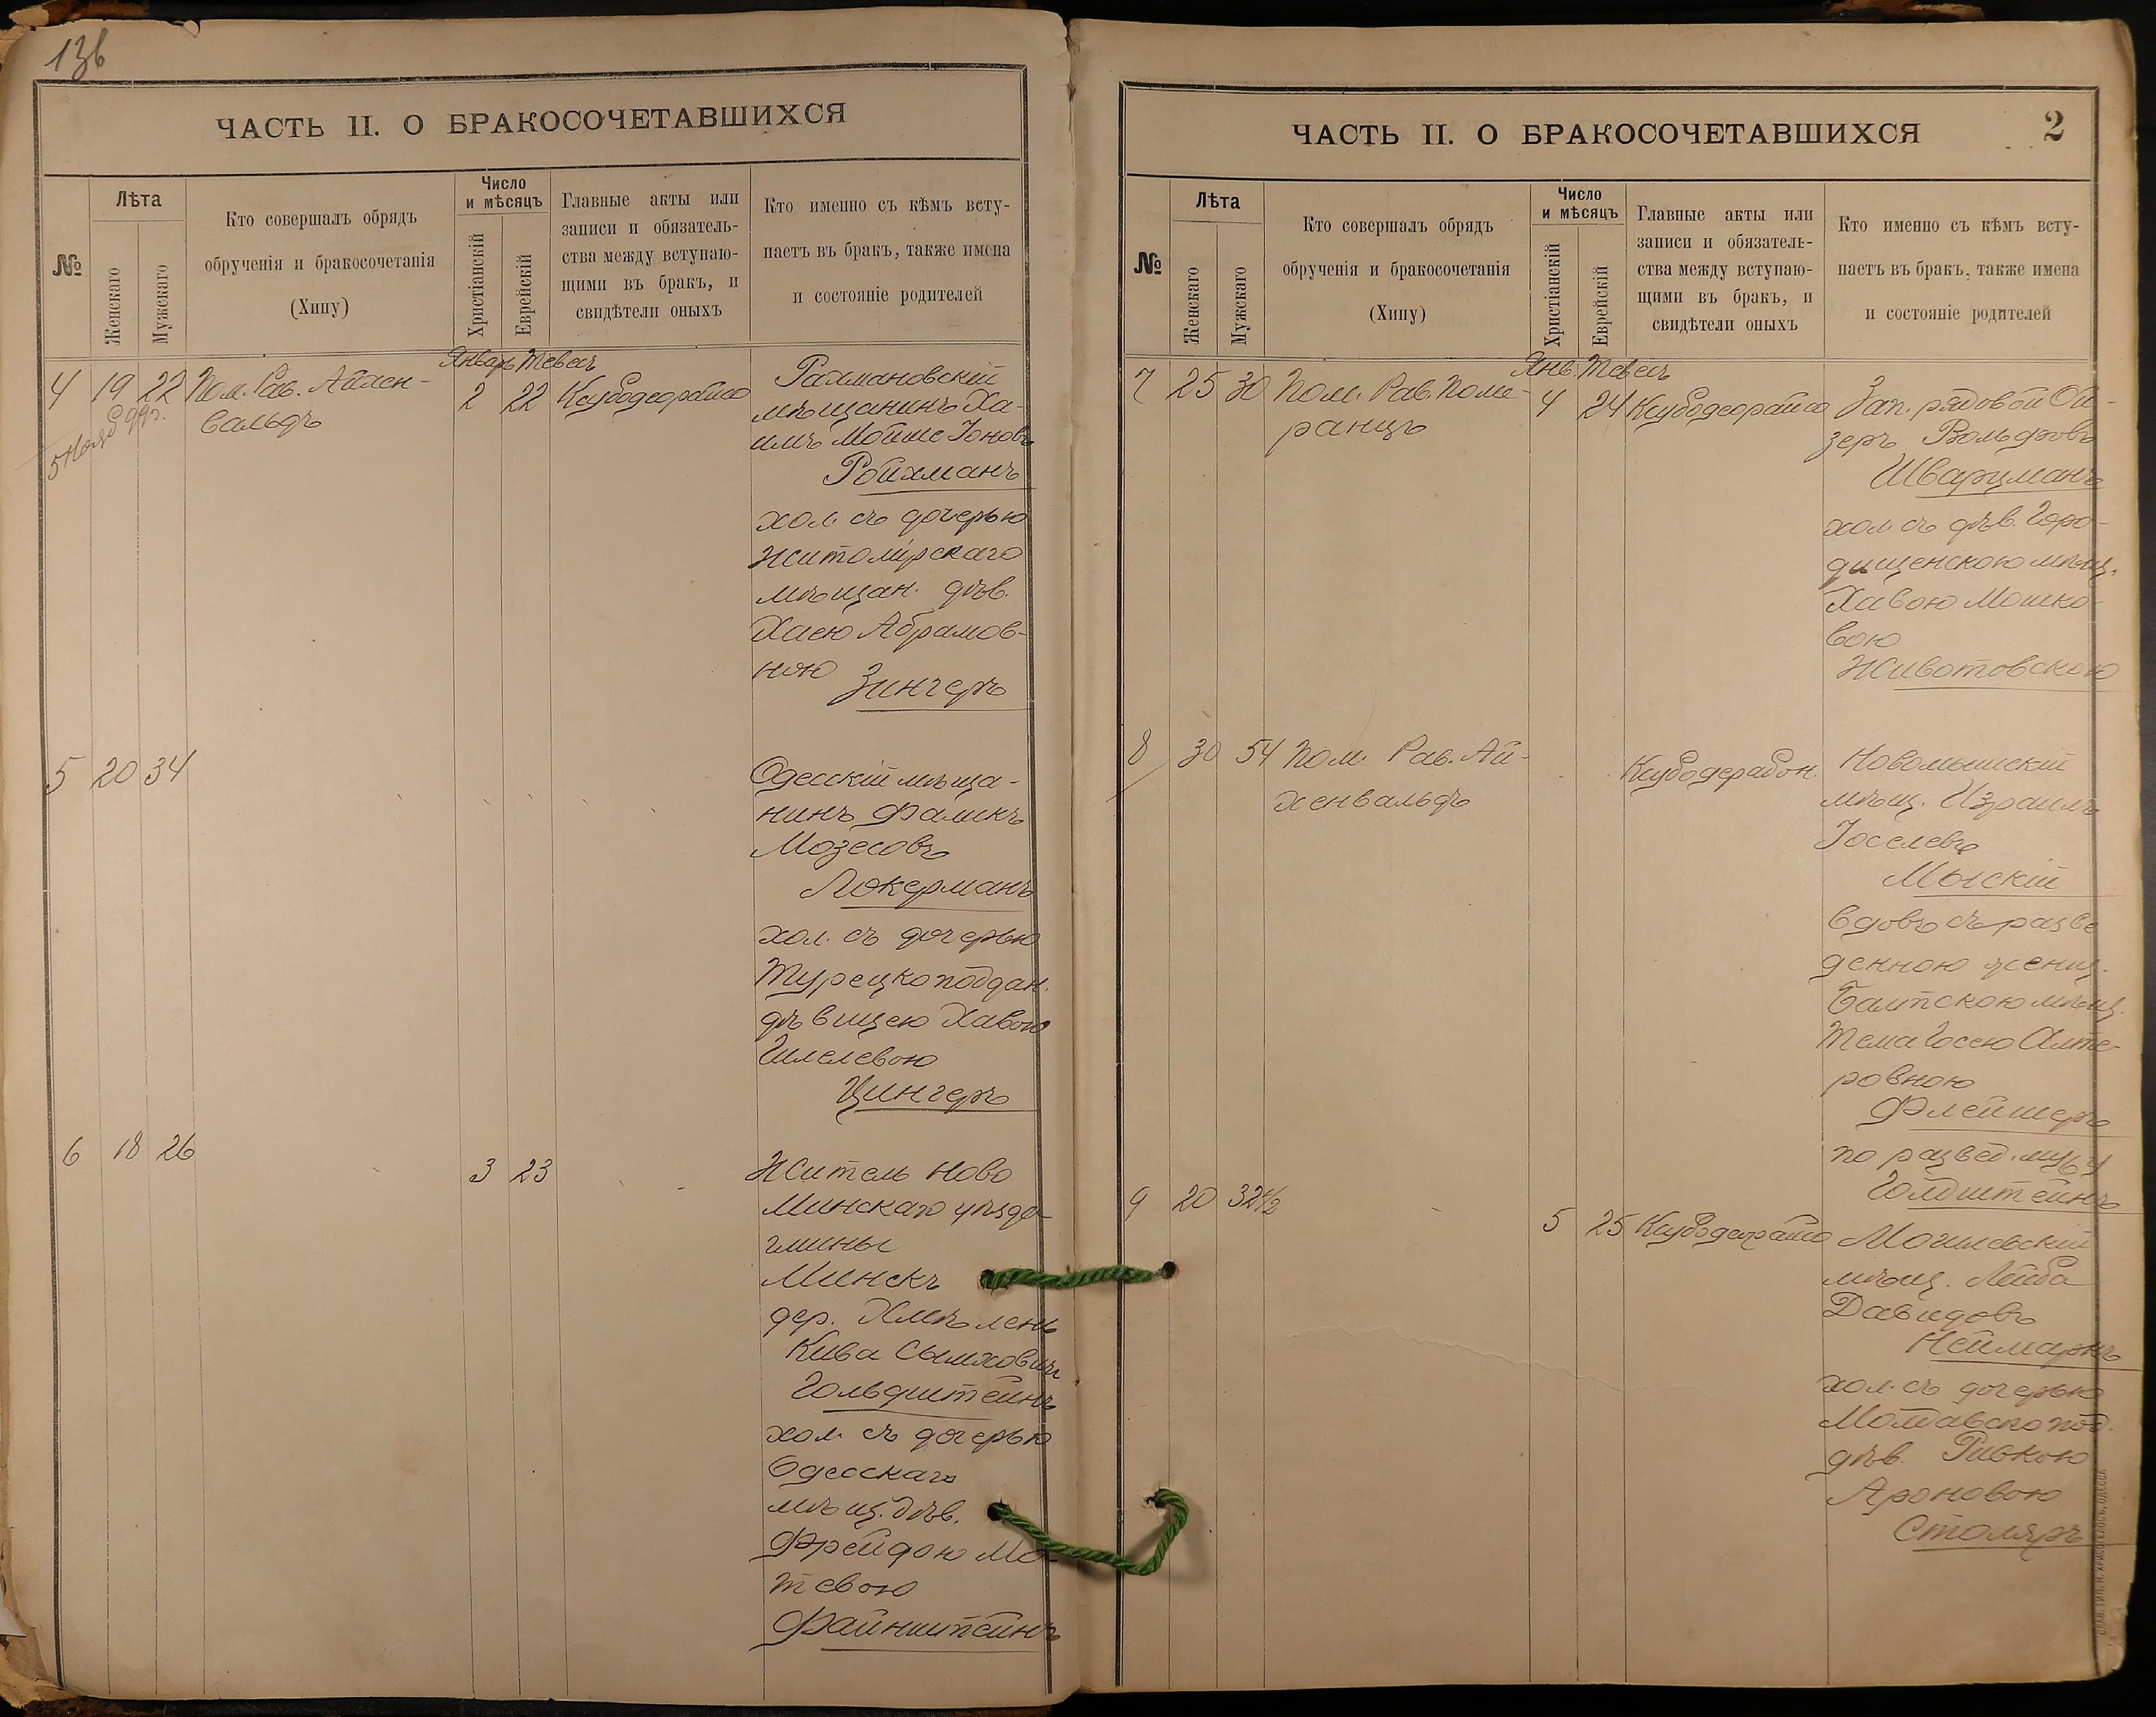 136
ЧАСТЬ II. О БРАКОСОЧЕТАВШИХСЯ
№
Лѣта
Женскаго
Мужскаго
Кто совершалъ обрядъ
обрученія и бракосочетанія
(Хипу)
Число
и мѣсяцъ
Христіанскій
Еврейскій
Главные акты или
записи и обязатель-
ства между вступаю-
щими въ бракъ, и
свидѣтели оныхъ
Кто именно съ кѣмъ всту-
паетъ въ бракъ, также имена
и состояніе родителей
Январь Тевесъ
4 19 22 Пом. Рав. Айхен-
вальдъ
2 22
Рахмановскій
мѣщанинъ Ха-
имъ Мойше Іоновъ
Ройхманъ
хол. съ дочерью
Житомірскаго
мѣщан. дѣв.
Хаею Абрамов-
ною
Зингеръ
5 20 34
Одесскій мѣща-
нинъ Фаликъ
Мозесовъ
Локерманъ
хол. съ дочерью
Турецкоподдан.
дѣвицею Хавою
Шлелевою
Цингеръ
6 18 26
3 23
Житель Ново
Минскаго уѣзда
гмины
Минскъ
дер.
Кива Сымховичъ
Гольдштейнъ
хол. съ дочерью
Одесскаго
мѣщ. дѣв.
Фрейдою Мо-
тевою
Файнштейнъ
ЧАСТЬ II. О БРАКОСОЧЕТАВШИХСЯ
2
№
Лѣта
Женскаго
Мужскаго
Кто совершалъ обрядъ
обрученія и бракосочетанія
(Хипу)
Число
и мѣсяцъ
Христіанскій
Еврейскій
Главные акты или
записи и обязатель-
ства между вступаю-
щими въ бракъ, и
свидѣтели оныхъ
Кто именно съ кѣмъ всту-
паетъ въ бракъ, также имена
и состояніе родителей
Янв. Тевесъ
7 25 30 Пом. Рав. Поме-
ранцъ
4 24
Зап. рядовой Ой-
зеръ Вольфовъ
Шварцманъ
хол. съ дѣв. Горо-
дищенскою мѣщ.
Хавою Мошко-
вою
Животовскою
8 30 54 Пом. Рав. Ай-
хенвальдъ
Новомышскій
мѣщ. Израиль
Іоселевъ
Мыскій
вдовъ съ разве
денною женщ.
Балтскою мѣщ.
Тема Госею Алте-
ровною
Флейшеръ
по развед. мужу
Голдштейнъ
9 20 32 1/2
5 25
Могилевскій
мѣщ. Лейба
Давидовъ
Неймаркъ
хол. съ дочерью
Молдавско под.
дѣв. Ривкою
Ароновою
Столяръ